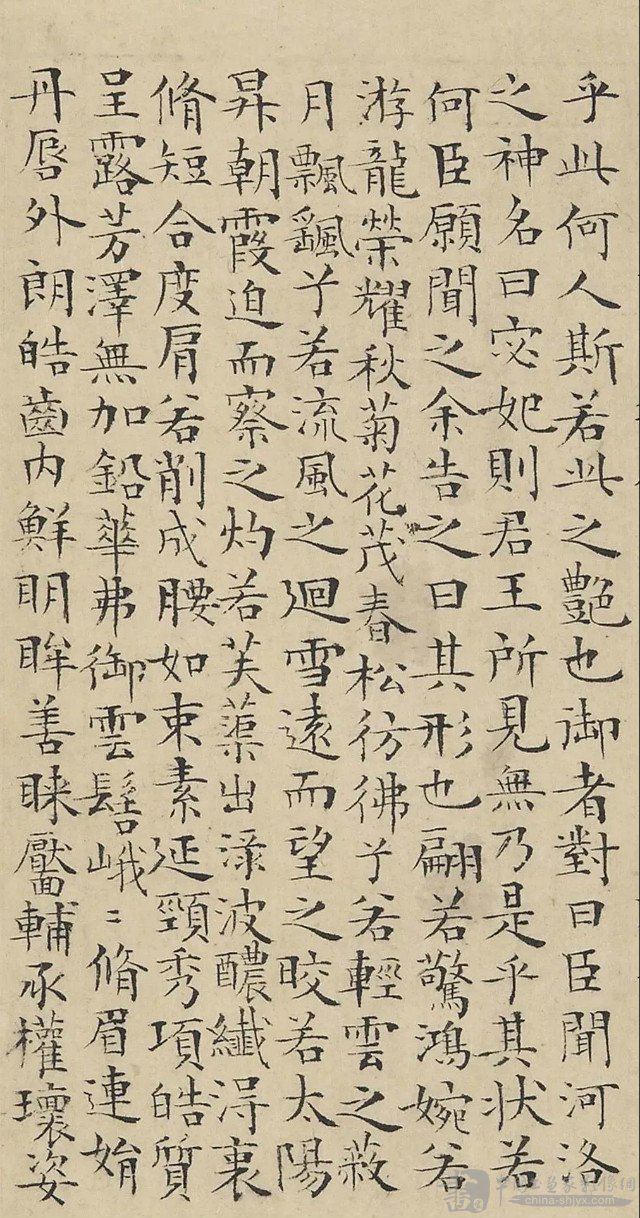 乎此何人斯若此之艷也御者對曰臣聞河洛
之神名曰宓妃則君王所見無乃是乎其狀若
何臣願聞之余告之曰其形也翩若驚鴻婉若
游龍榮耀秋菊花茂春松彷彿兮若輕雲之蔽
月飄飖兮若流風之迴雪遠而望之晈若太陽
昇朝霞迫而察之灼若芙蕖出淥波醲纖得衷
脩短合度肩若削成腰如束素延頸秀項皓質
呈露芳澤無加鉛華弗御雲髻峨〻脩眉連娟
丹唇外朗皓齒内鮮明眸善睞靨輔承權瓌姿
china-shjyx.com